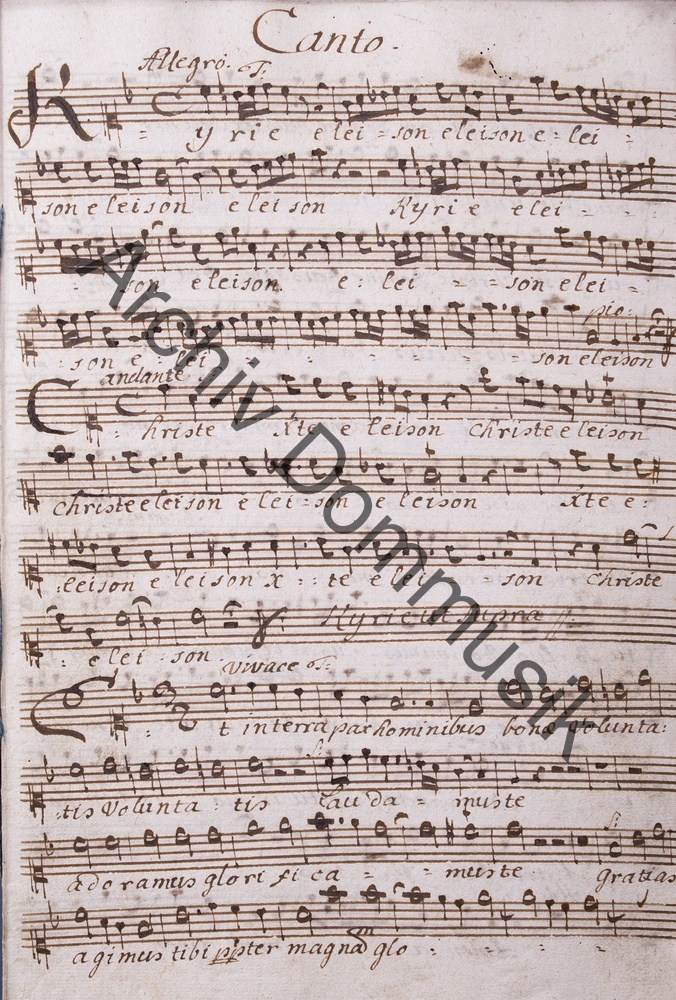 Canto.
Allegro. T:
Kyrie elei - son eleison e - lei -
son eleison elei son Kyri e elei - -
- son eleison. e : lei - - son elei -
pio:
- son e - lei - - - - son eleison
andante
Christe Xte e leison Christe eleison
Christe eleison e lei - son e leison Xte e :
eleison e leison X - : te e lei - son Christe
Kyrie ut supra
: e lei : son
Vivace T:
Et in terra pax hominibus bonæ volunta:
:tis volunta : tis lau da - muste
adoramus glori fi ca - - muste gratias
agimus tibi ppter magnã glo - - -
Archiv Dommusik